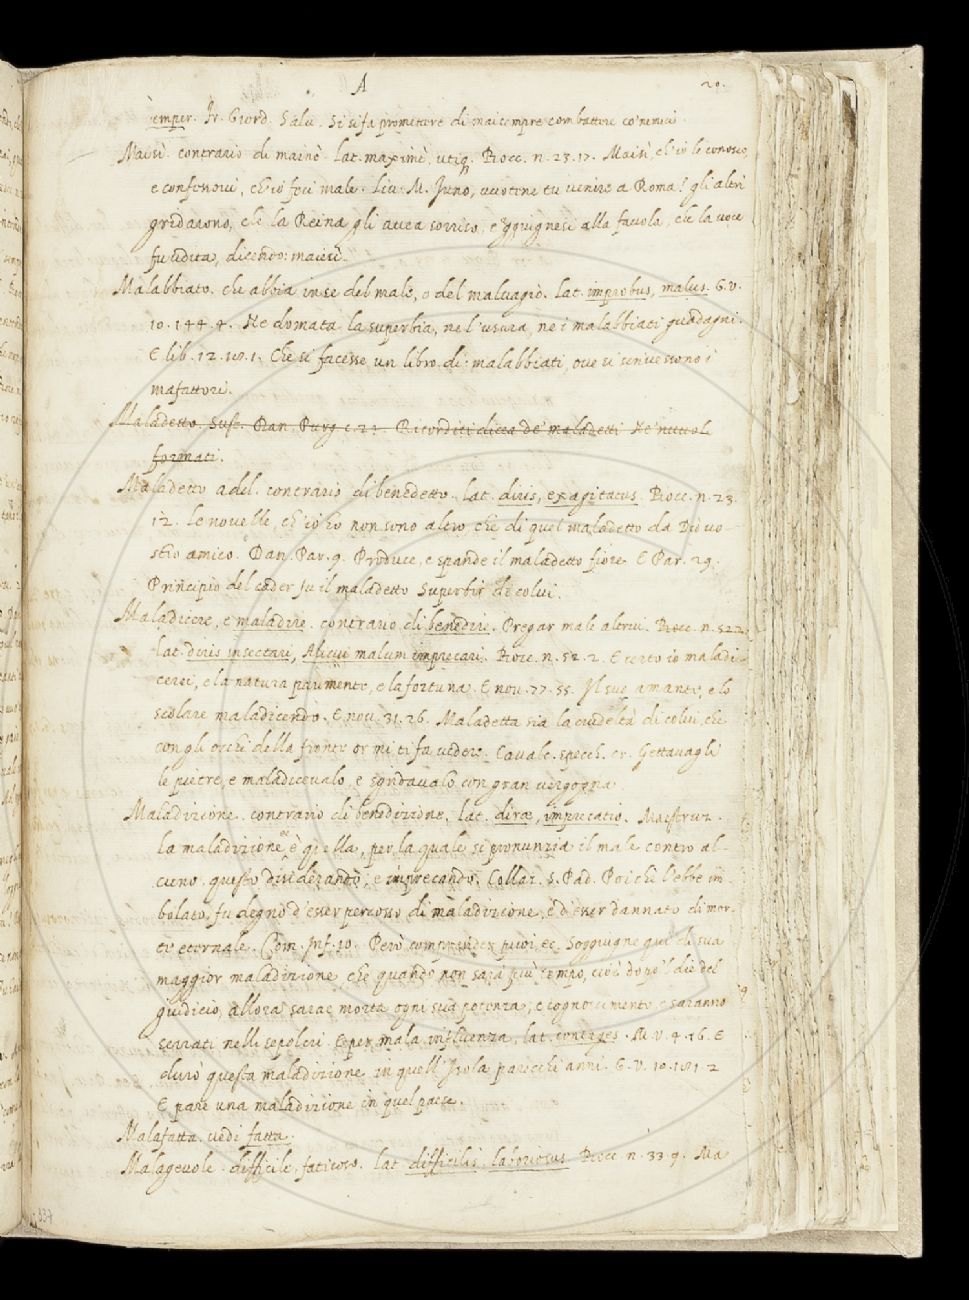 A 20.
semper. Fr. Giord. Salu. Si si fa promettere di mai sempre combattere co' nemici.
Maisì. contrario di mainò. lat. maximè, utiq. Bocc. n. 23. 17. Maisì, ch'io le conosco,
e confessovi, ch'io feci male. Liv. M. Juno, vuotene tu venire a Roma? gli altri
gridarono, che la Reina gli avea sorriso, e gguignesi alla favola, che la voce
fu udita, dicendo: maisì.
Malabbiato. che abbia in se del male, o del malvagio. lat. improbus, malus. G. V.
10. 144. 4. He domata la superbia, ne l'usura, ne i malabbiati guadagni.
E lib. 12. 18. 1. Che si facesse un libro di malabbiati, ove si scrivessono i
mafattori.
Maladetto. Sust. Dan. Purg. c. 24. Ricorditi dicea de' maladetti Ne' nuvoli
formati.
Maladetto adel. contrario di benedetto. lat. diris, exagitatus. Bocc. n. 23.
12. Le novelle, ch'io ho non sono altro che di quel maladetto da Dio vo-
stro amico. Dan. Par. 9. Produce, e spande il maladetto fiore. E Par. 29.
Principio del cader fu il maladetto Superbir di colui.
Maladicere, e maladire. contrario di benedire. Pregar male altrui. Bocc. n. 52. 2.
lat. diris insectari, Alicui malum imprecari. Bocc. n. 52. 2. E certo io maladi-
cerei, e la natura parimente, e la fortuna. E nov. 77. 55. Il suo amante, e lo
scolare maladicendo. E nov. 31. 26. Maladetta sia la crudeltà di colui, che
con gli occhi della fronte or mi ti fa vedere. Cavalc. specch. cr. Gettavagli
le pietre, e maladicevalo, e sgridavalo con gran vergogna.
Maladizione. contrario di benedizione. lat. dirae, imprecatio. Maestruz.
la maladizione è quella, per la quale si pronunzia il male contro al-
cuno. questo desiderando, e imprecando. Collaz. S. Pad. Poichè l'ebbe in-
bolato, fu degno d'esser percosso di maladizione, e d'esser dannato di mor-
te eternale. Com. Inf. 10. Però comprender puoi, ec. Soggiugne qui di sua
maggior maladizione, che quando non sarà più tempo, cioè dopo 'l dì del
giudicio, allora sarae morta ogni sua potenza, e cognoscimento e saranno
serrati nelli sepolcri. E per mala influenza, lat. contages. M. V. 4. 16. E
durò questa maladizione in quell'Isola parecchi anni. G. V. 10. 181. 2
E pare una maladizione in quel paese.
Malafatta. vedi fatta.
Malagevole. difficile, faticoso. lat. difficilis, laboriosus. Bocc. n. 33. 9. Ma
337